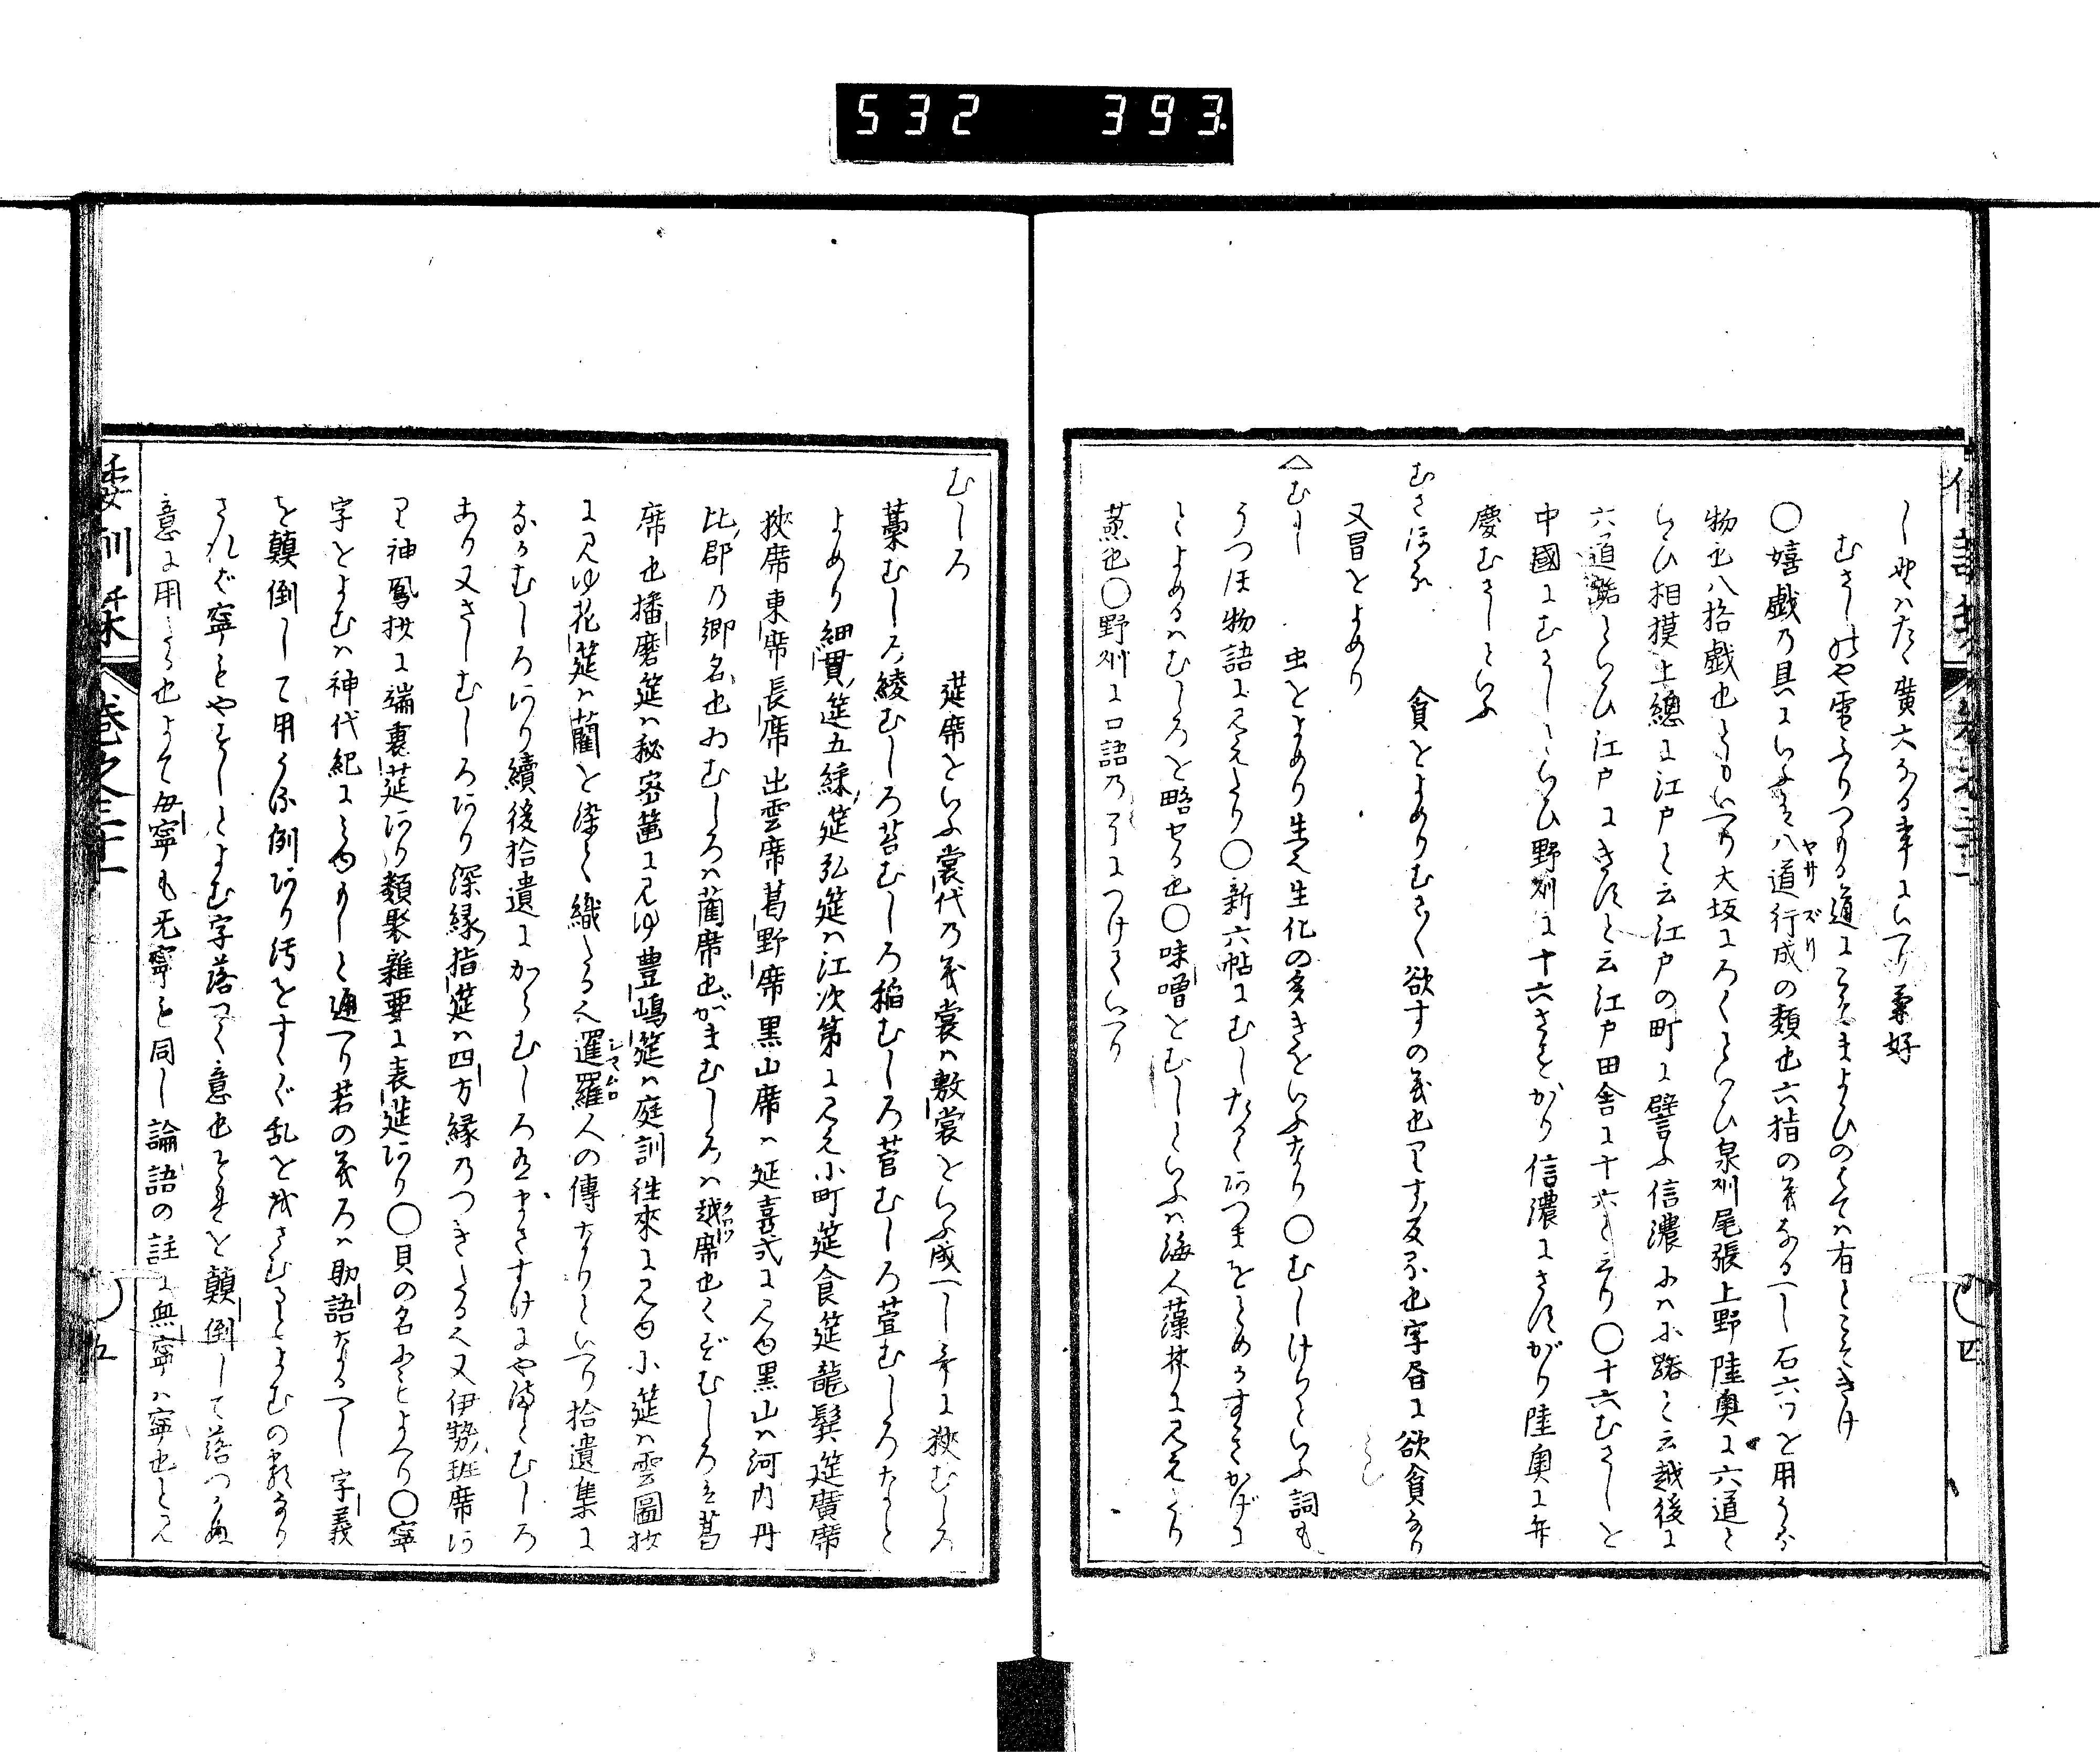 532 393
し野はたゝ廣大なる事にいへり兼好
むさし野や雪ふりつもる道にこそまよひのはては有とこそきけ
○嬉戯の具にいふは八道行成の類也六指の義なるへし石六ツを用うる
ヤサズリ
物也八格戯也ともいへり大坂にろくといひ泉州尾張上野陸奥に六道と
いひ相摸上總に江戸と云江戸の町に譬ふ信濃にハ小路と云越後に
六道路といひ江戸にきずと云江戸田舎に十六といへり○十六むさしと
中國にむさしといひ野州に十六さすかり信濃にさすがり陸奥に弁
慶むさしといふ
むさほる 貪をよめりむさく欲すの義也りす反る也字書に欲貪なり
又冒をよめり
△むし 虫をよめり生也生化の多きをいふなり○むしけらといふ詞も
うつほ物語に見えたり○新六帖にむしたるゝあつまをとめのすきかげに
とよめるハむしろを略せる也○味噌をむしといふハ海人藻芥に見えたり
蒸也○野州に口語の下につけていへり
四
むしろ 莚席をいふ裳代の義裳ハ敷裳をいふ成へし歌に狭むしろ
藁むしろ綾むしろ苔むしろ稲むしろ菅むしろ萱むしろなと
よめり細貫筵五綵筵弘筵ハ江次第に見え小町筵食筵龍鬢筵廣席
狹席東席長席出雲席葛野席黒山席ハ延喜式に見ゆ黒山ハ河内丹
比郡の郷名也ゐむしろハ藺席也がまむしろハ越席也くずむしろは葛
席也播磨筵ハ秘密莚に見ゆ豊嶋筵ハ庭訓往來に見ゆ小筵ハ雲圖抄
に見ゆ花筵ハ藺を染て織たる也暹羅人の傳なりといへり拾遺集に
シヤムロ
ながむしろあり續後拾遺にからむしろ
あり又さしむしろあり深縁指筵ハ四方縁のつきたる也又伊勢班席あ
り神鳳抄に端裏莚あり類聚雜要に表筵あり○貝の名にもよへり○寧
字をよむハ神代紀に見ゆもしと通へり若の義ろハ助語なるへし字義
を顛倒して用うる例あり汚をすゝぐ乱をおさむるとよむの類なり
されば寧をやすしとよむ字落つく意也それを顛倒して落つかぬ
意に用たる也よて毋寧も无寧も同し論語の註に無寧ハ寧也と見
倭訓栞 巻之三十一
五